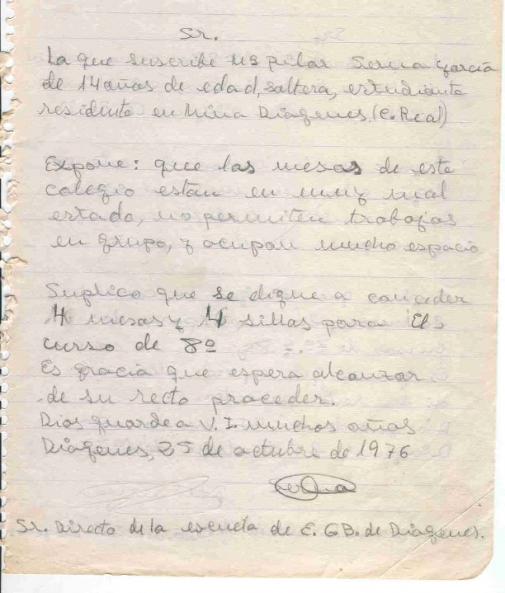 Sr.
La que suscribe Mª pilar Serna García
de 14 años de edad, soltera, estudiante
residente en Mina Diógenes, (C. Real)
Expone: que las mesas de este
colegio están en muy mal
estado, no permiten trabajar
en grupo, y ocupan mucho espacio
Suplico que se digne a conceder
4 mesas y 4 sillas para El
curso de 8º
Es gracia que espera alcanzar
de su recto proceder.
Dios guarde a V. I. muchos años
Diógenes, 25 de octubre de 1976
Sr. Directo de la escuela de E. G B. de Diógenes.